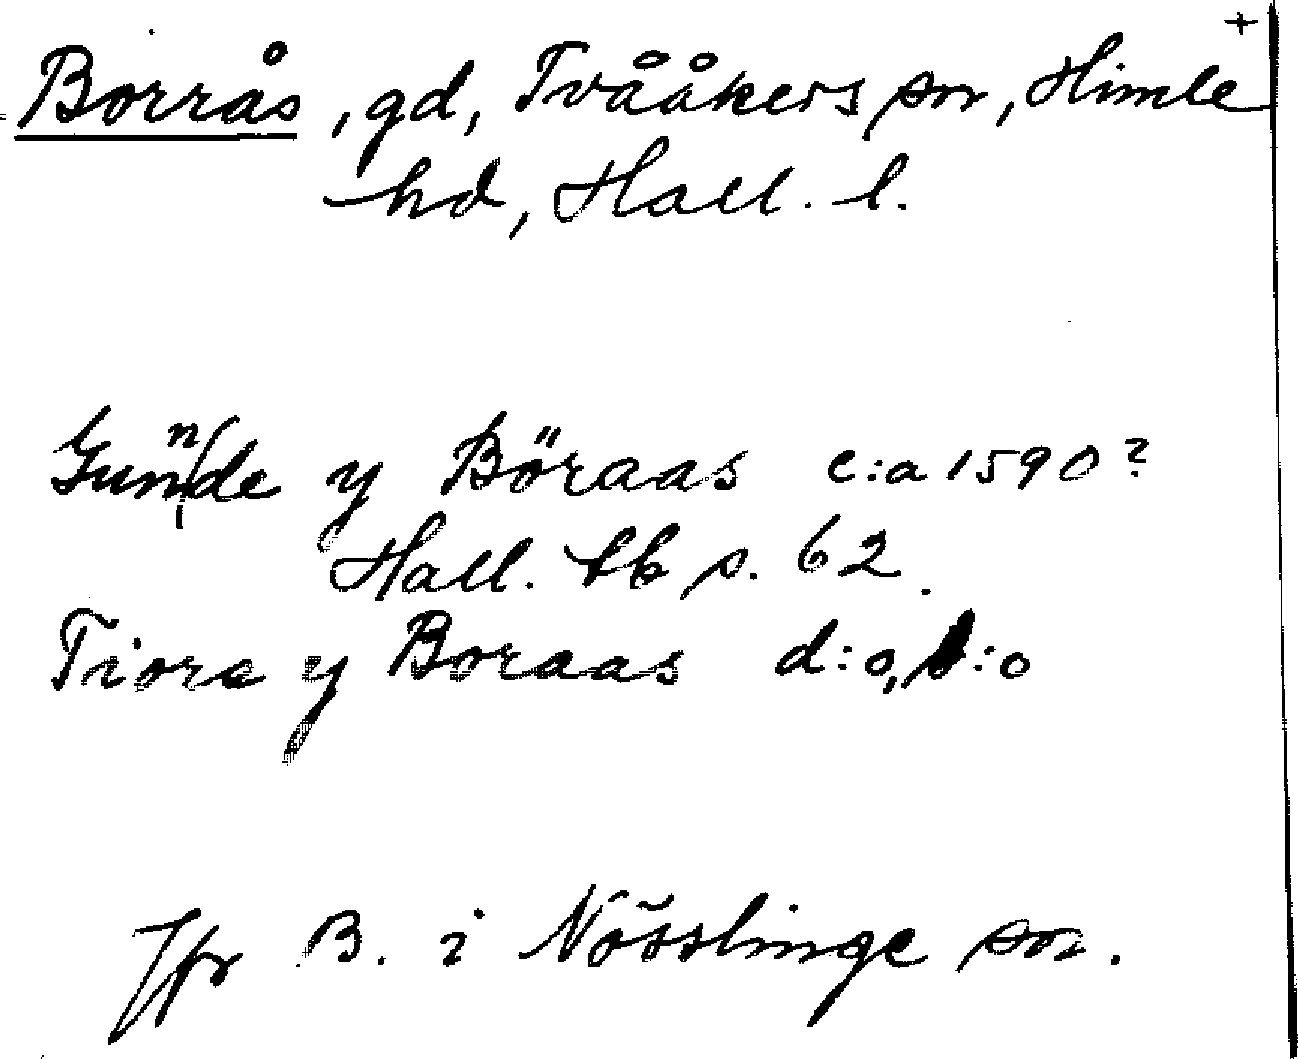 +
Borrås, gd, Tvååkers sn, Himle
hd, Hall. l.
Gunnde y Böraas c:a 1590?
Hall. tb s. 62.
Tiore y Boraas d:o, d:o
Jfr B. i Nösslinge sn.